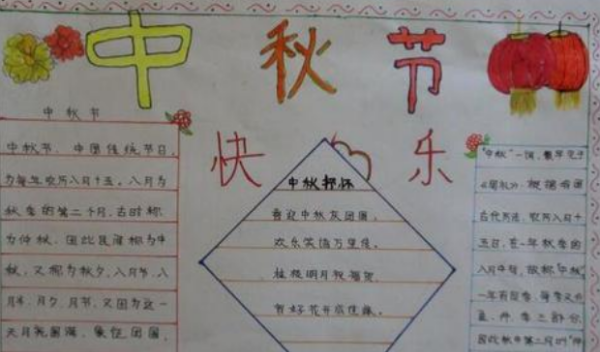 中秋节
快乐
中秋节
中秋节,中国传统节日,
为每年农历八月十五。八月为
秋季的第二个月,古时称
为仲秋,因此民间称为中
秋,又称为秋夕,八月节,八
月半,月夕,月节,又因为这一
天月亮圆满,象征团圆,
中秋抒怀
喜迎中秋庆团圆,
欢乐笑语万里传。
桂枝明月祝福贺,
育好花开成佳缘。
"中秋"一词,最早见于
《周礼》。根据我国
古代历法,农历八月十
五日,在一年秋季的
八月中旬,故称"中秋"
一年有四季,每季又分
孟、仲、季三部分,
因为秋中第二月叫"仲